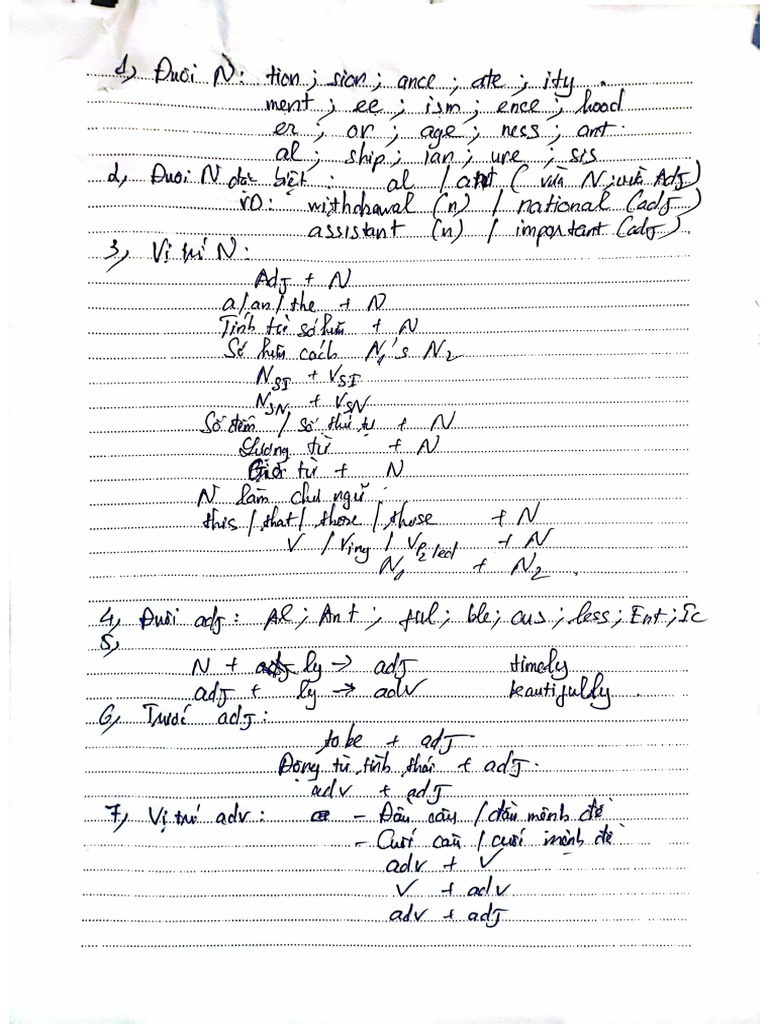 1, Đuôi N: tion ; sion ; ance ; ate ; ity .
ment ; ee ; ism ; ence ; hood
er ; or ; age ; ness ; ant .
al ; ship ; ian ; ure ; sis
2, Đuôi N đặc biệt : al / ant ( vừa N ; vừa Adj )
VD: withdrawal (n) / national (adj)
assistant (n) / important (adj).
3, Vị trí N :
Adj + N
a / an / the + N
Tính từ sở hữu + N
Sở hữu cách N1's N2
NSI + VSI
NSN + VSN
Số đếm / số thứ tự + N
Lượng từ + N
Giới từ + N
N làm chủ ngữ
this / that / those / those + N
V / Ving / Vp2 / ed + N
N1 + N2 .
4, Đuôi adj : Al ; Ant ; ful ; ble ; ous ; less ; Ent ; Ic
5,
N + ly → adj timely
adj + ly → adv beautifully .
6, Trước adj :
to be + adj
Động từ tình thái + adj .
adv + adj
7, Vị trí adv : - Đầu câu / đầu mệnh đề
- Cuối câu / cuối mệnh đề
adv + V
V + adv
adv + adj